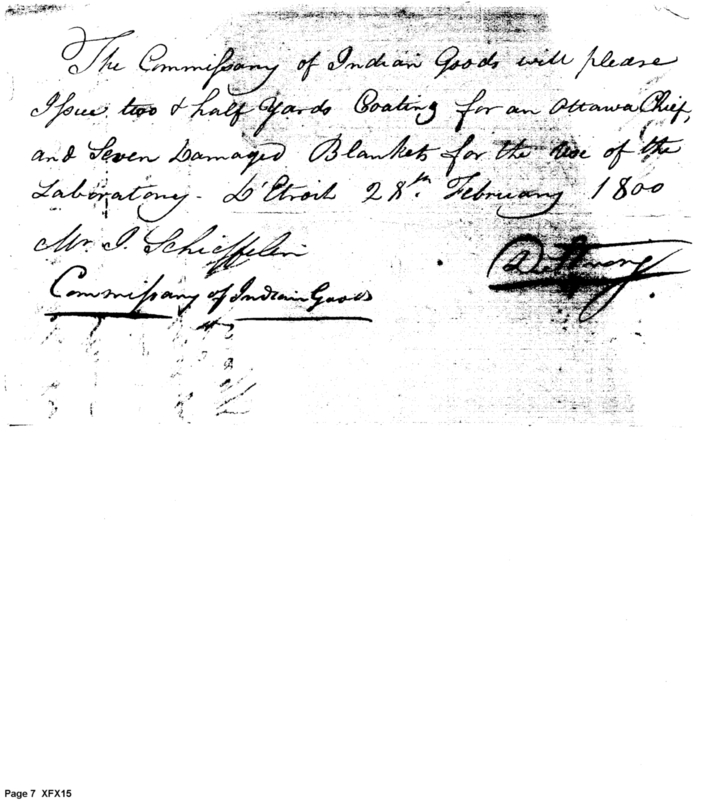 The Commissary of Indian Goods will please
Issue two & half Yards Coating for an Ottawa Chief,
and Seven Damaged Blankets for the use of the
Laboratory - D'Etroit 28th February 1800
Mr. J. Schieffelin
Commissary of Indian Goods
Page 7 XFX15